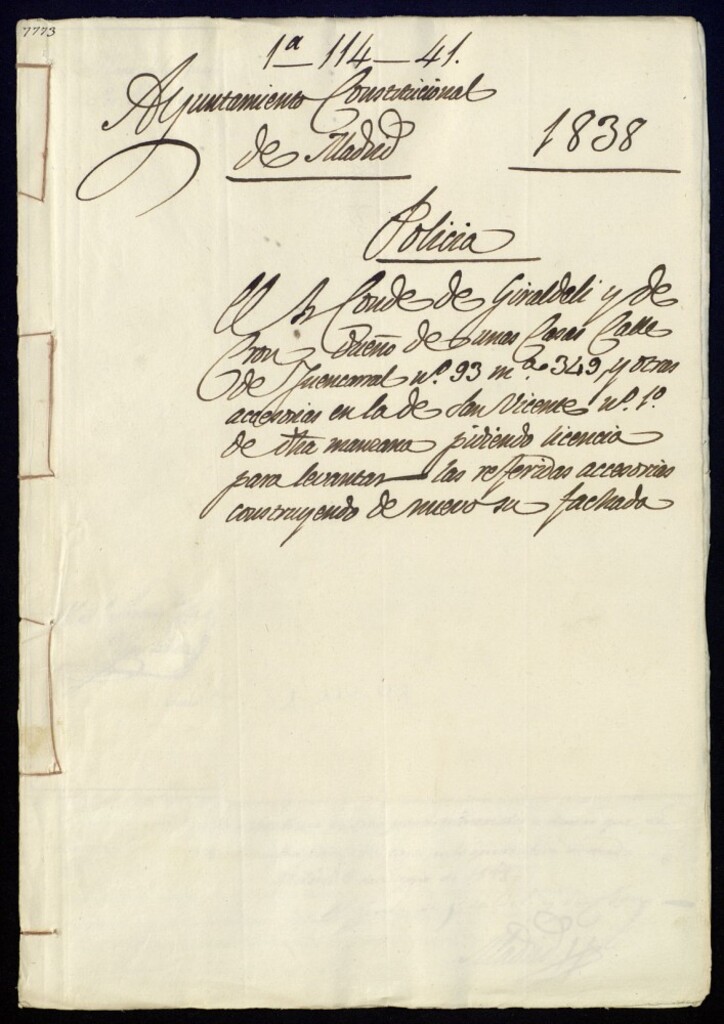 7773
1ª — 114 — 41.
Ayuntamiento Constitucional
de Madrid
1838
Policia
El Sr Conde de Giraldeli y de
Croy Dueño de unas Casas Calle
de Fuencarral nº. 93 mª. 349, y otras
accesorias en la de San Vicente nº. 1º
de dha manzana pidiendo licencia
para levantar las referidas accesorias
construyendo de nuevo su fachada